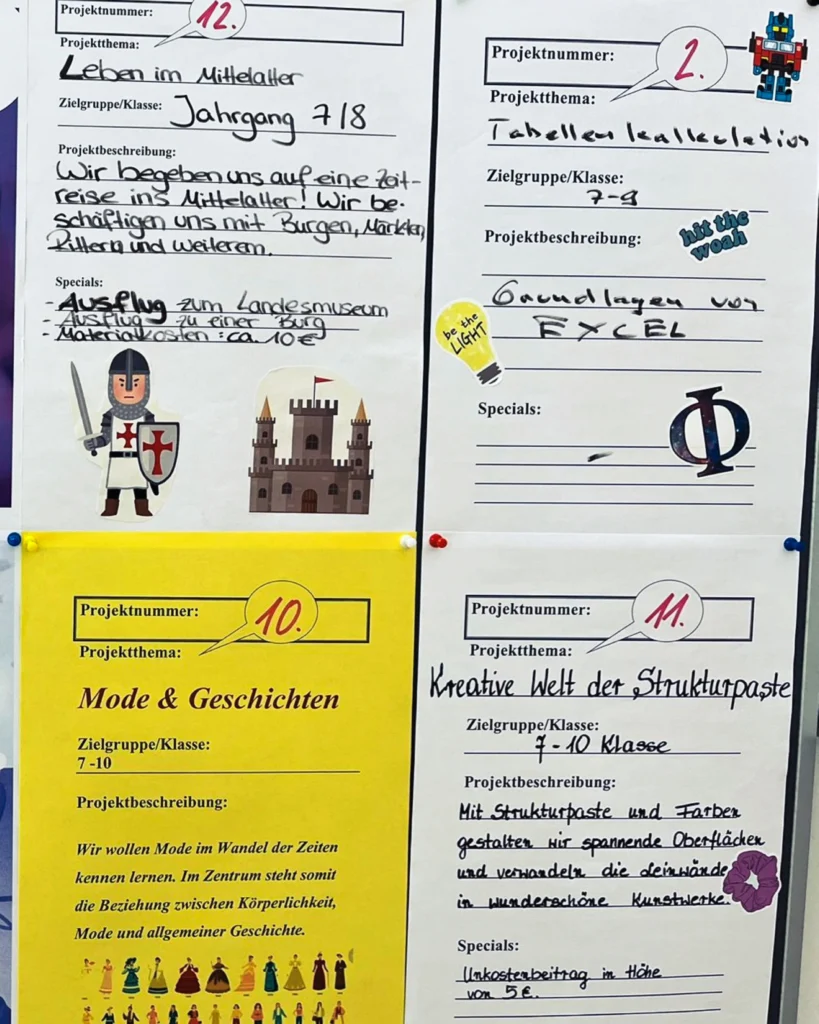 Projektnummer: 12.
Projektthema:
Leben im Mittelalter
Zielgruppe/Klasse: Jahrgang 7/8
Projektbeschreibung:
Wir begeben uns auf eine Zeit-
reise ins Mittelalter! Wir be-
schäftigen uns mit Burgen, Märkten,
Rittern und weiterem.
Specials:
- Ausflug zum Landesmuseum
- Ausflug zu einer Burg
- Materialkosten: ca. 10€
Projektnummer: 2.
Projektthema:
Tabellenkalkulation
Zielgruppe/Klasse:
7-9
Projektbeschreibung:
hit the
woah
Grundlagen von
EXCEL
be the
LIGHT
Specials:
-
Φ
Projektnummer: 10.
Projektthema:
Mode & Geschichten
Zielgruppe/Klasse:
7-10
Projektbeschreibung:
Wir wollen Mode im Wandel der Zeiten
kennen lernen. Im Zentrum steht somit
die Beziehung zwischen Körperlichkeit,
Mode und allgemeiner Geschichte.
Projektnummer: 11.
Projektthema:
Kreative Welt der Strukturpaste
Zielgruppe/Klasse:
7-10 Klasse
Projektbeschreibung:
Mit Strukturpaste und Farben
gestalten wir spannende Oberflächen
und verwandeln die Leinwände
in wunderschöne Kunstwerke.
Specials:
Unkostenbeitrag in Höhe
von 5€.